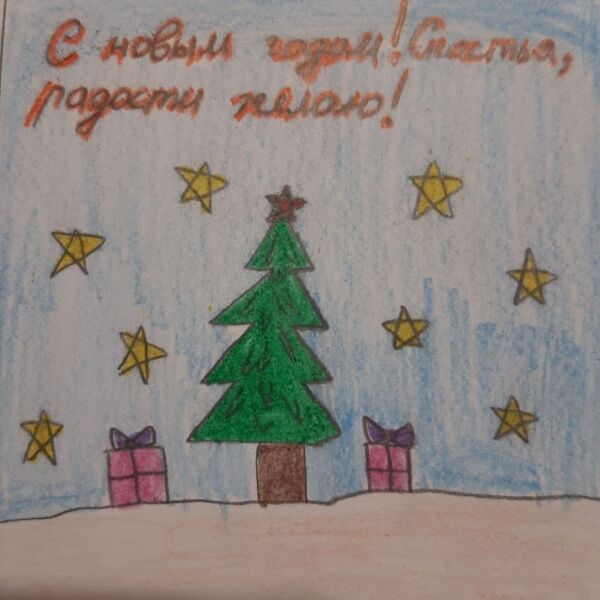 С новым годом! Счастья,
радости желаю!